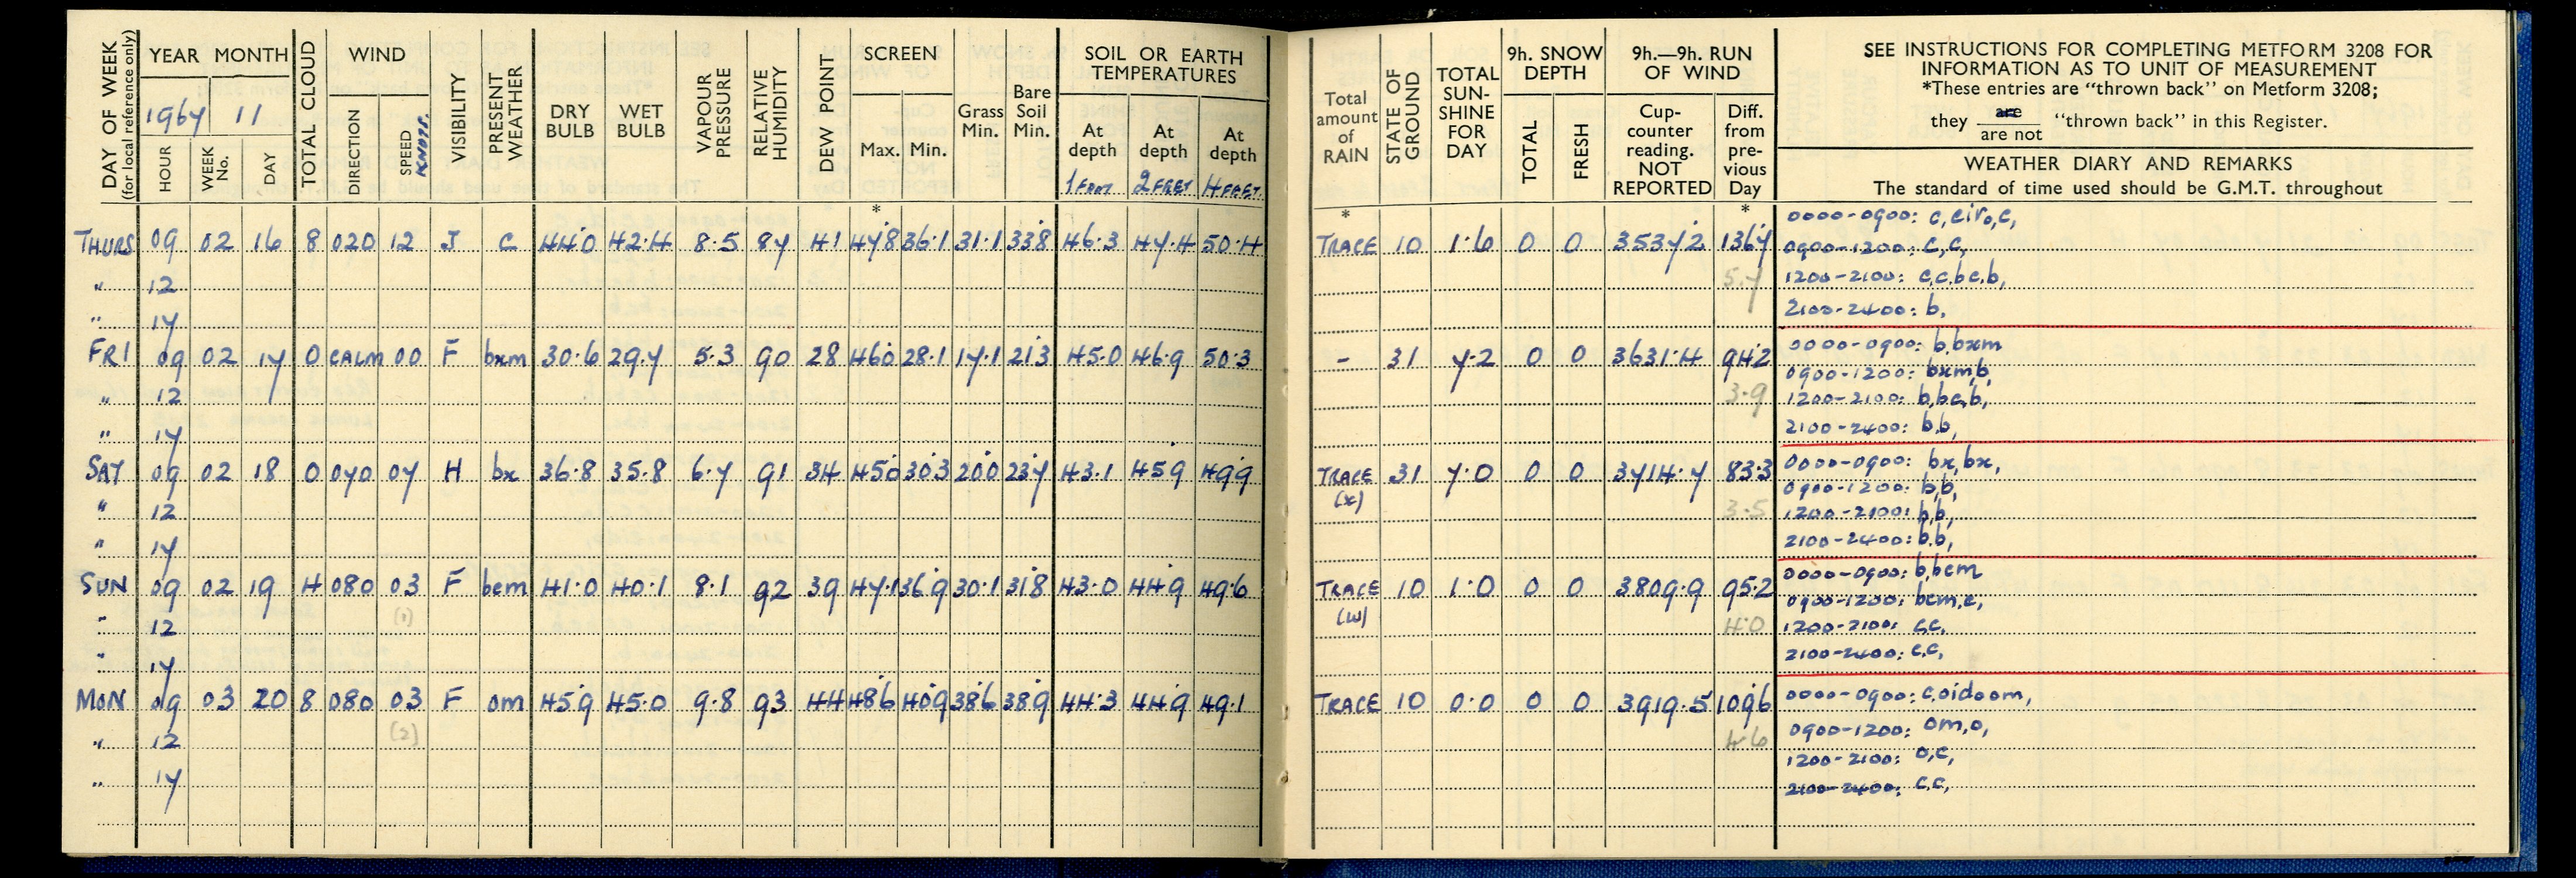 DAY OF WEEK
(for local reference only)
YEAR MONTH
1967 11
HOUR
WEEK No.
DAY
TOTAL CLOUD
WIND
DIRECTION
SPEED KNOTS.
VISIBILITY
PRESENT WEATHER
DRY BULB
WET BULB
VAPOUR PRESSURE
RELATIVE HUMIDITY
DEW POINT
SCREEN
Max. Min.
Grass Min.
Bare Soil Min.
SOIL OR EARTH TEMPERATURES
At depth 1 FOOT
At depth 2 FEET
At depth 4 FEET.
Total amount of RAIN
STATE OF GROUND
TOTAL SUN-SHINE FOR DAY
9h. SNOW DEPTH
TOTAL
FRESH
9h.—9h. RUN OF WIND
Cup-counter reading. NOT REPORTED
Diff. from pre-vious Day
SEE INSTRUCTIONS FOR COMPLETING METFORM 3208 FOR
INFORMATION AS TO UNIT OF MEASUREMENT
*These entries are "thrown back" on Metform 3208;
they are / are not "thrown back" in this Register.
WEATHER DIARY AND REMARKS
The standard of time used should be G.M.T. throughout
* * *
THURS 09 02 16 8 020 12 J c 44.0 42.4 8.5 87 41 47.8 36.1 31.1 33.8 46.3 47.4 50.4 TRACE 10 1.6 0 0 3537.2 136.7
0000-0900: c,ciro,c,
0900-1200: c,c,
" 12 5.7
1200-2100: c,c,bc,b,
" 17
2100-2400: b,
FRI 09 02 17 0 CALM 00 F bxm 30.6 29.7 5.3 90 28 46.0 28.1 17.1 21.3 45.0 46.9 50.3 - 31 7.2 0 0 3631.4 94.2
0000-0900: b,bxm
0900-1200: bxm,b,
" 12 3.9
1200-2100: b,bc,b,
" 17
2100-2400: b,b,
SAT 09 02 18 0 070 07 H bx 36.8 35.8 6.7 91 34 45.0 30.3 20.0 23.7 43.1 45.9 49.9 TRACE (x) 31 7.0 0 0 3714.7 83.3
0000-0900: bx,bx,
0900-1200: b,b,
" 12 3.5
1200-2100: b,b,
" 17
2100-2400: b,b,
SUN 09 02 19 4 080 03 F bcm 41.0 40.1 8.1 92 39 47.1 36.9 30.1 31.8 43.0 44.9 49.6 TRACE (w) 10 1.0 0 0 3809.9 95.2
0000-0900: b,bcm
0900-1200: bcm,c,
" 12 (1) 4.0
1200-2100: c,c,
" 17
2100-2400: c,c,
MON 09 03 20 8 080 03 F om 45.9 45.0 9.8 93 44 48.6 40.9 38.6 38.9 44.3 44.9 49.1 TRACE 10 0.0 0 0 3919.5 109.6
0000-0900: c,oidoom,
0900-1200: om,o,
" 12 (2) 4.6
1200-2100: o,c,
" 17
2100-2400: c,c,